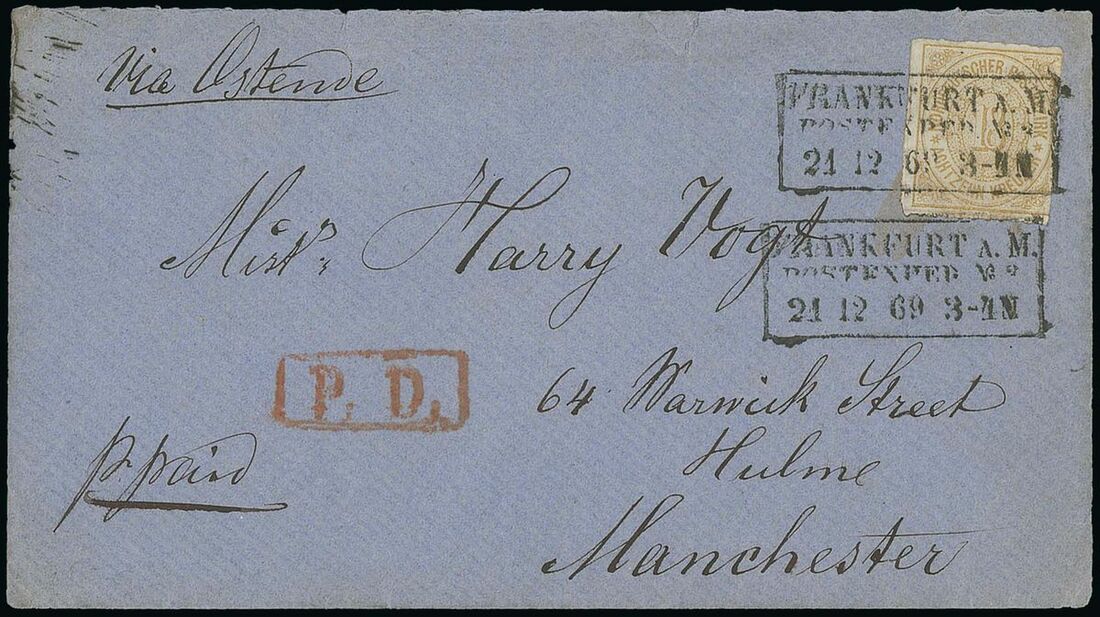 via Ostende
FRANKFURT A. M.
POSTEXPED № 3
21 12 69 3-4N
18
FRANKFURT A. M.
POSTEXPED № 3
21 12 69 3-4N
Mistr Harry Vogt
P. D.
64 Warwick Street
Hulme
Manchester
p. paid